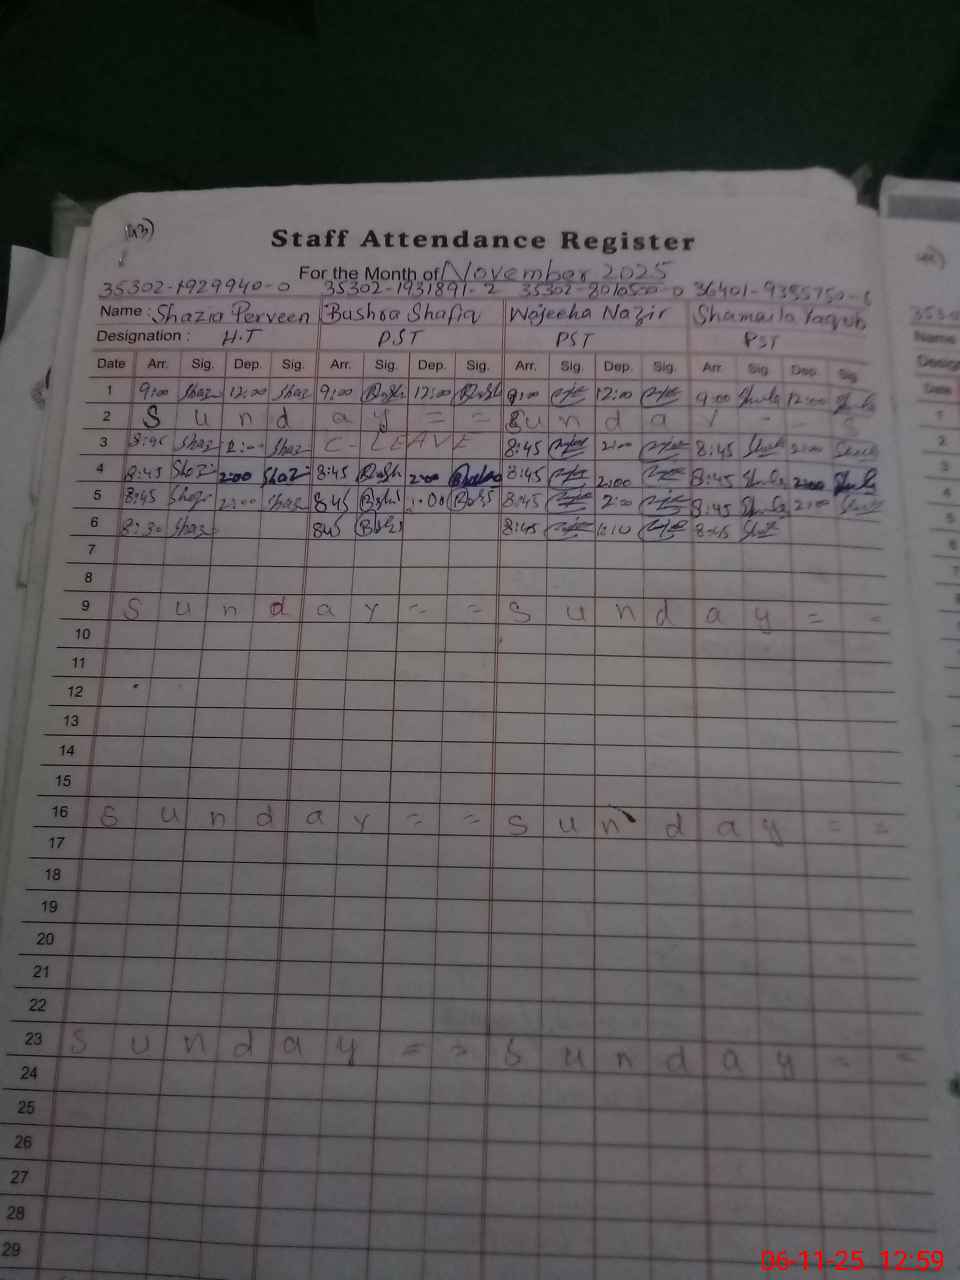 Staff Attendance Register
For the Month of November 2025
35302-1929940-0 35302-1931891-2 35302-8010500-0 36401-9355750-
Name : Shazia Perveen Bushra Shafiq Wajeeha Nazir Shamaila Yaqub
Designation : H.T PST PST PST
Date Arr. Sig. Dep. Sig. Arr. Sig. Dep. Sig. Arr. Sig. Dep. Sig. Arr. Sig. Dep. Sig.
1 9:00 Shaz 12:00 Shaz 9:00 12:00 9:00 12:00 9:00 12:00
2 S u n d a y = = S u n d a y - - S
3 Shaz Shaz C- LEAVE 8:45 2:00 8:45 2:00
4 8:45 Shaz 2:00 Shaz 8:45 Bush 2:00 Bushra 8:45 2:00 8:45 2:00
5 8:45 Shaz 2:00 Shaz 8:45 8:45 2:00 8:45 2:00
6 8:30 Shaz 845 8:45 8:45
7
8
9 S u n d a y = = S u n d a y = =
10
11
12
13
14
15
16 S u n d a y = = S u n d a y = =
17
18
19
20
21
22
23 S u n d a y = = S u n d a y = =
24
25
26
27
28
29
06-11-25 12:59